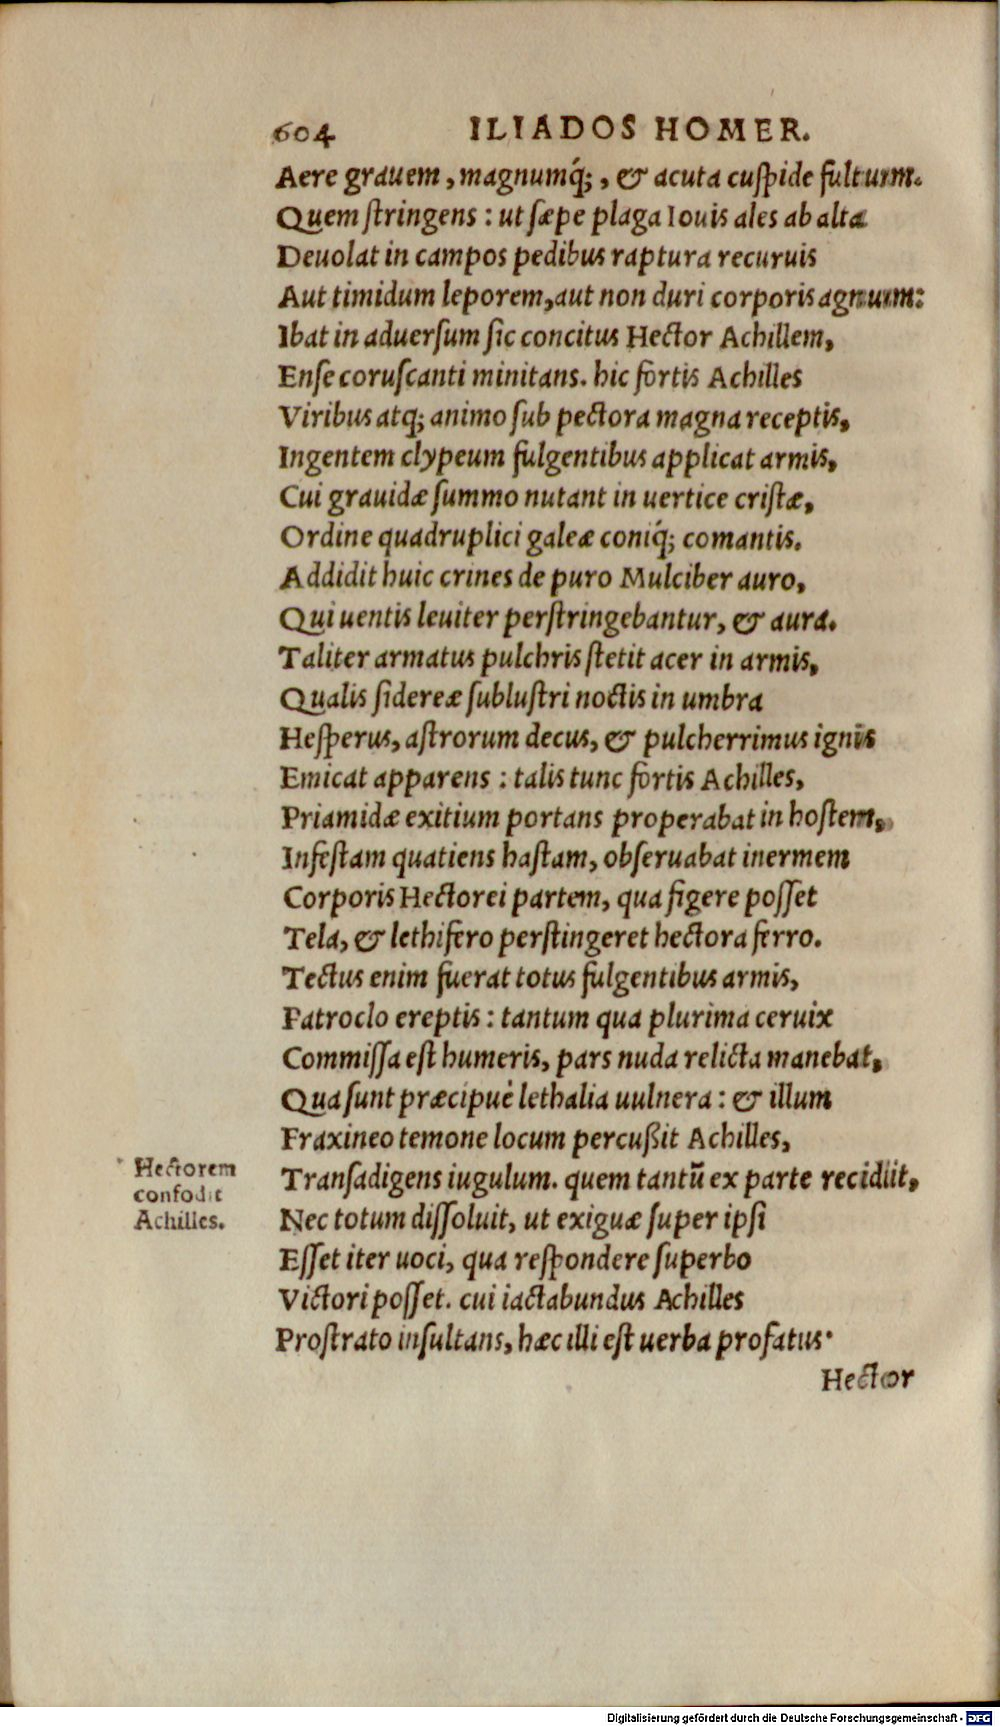 604 ILIADOS HOMER.
Aere grauem, magnumq́;, & acuta cuſpide fulturm.
Quem ſtringens: ut ſæpe plaga Iouis ales ab alta
Deuolat in campos pedibus raptura recuruis
Aut timidum leporem, aut non duri corporis agnum:
Ibat in aduerſum ſic concitus Hector Achillem,
Enſe coruſcanti minitans. hic fortis Achilles
Viribus atq; animo ſub pectora magna receptis,
Ingentem clypeum fulgentibus applicat armis,
Cui grauidæ ſummo nutant in uertice criſtæ,
Ordine quadruplici galeæ coniq́; comantis.
Addidit huic crines de puro Mulciber auro,
Qui uentis leuiter perſtringebantur, & aura.
Taliter armatus pulchris ſtetit acer in armis,
Qualis ſidereæ ſubluſtri noctis in umbra
Heſperus, aſtrorum decus, & pulcherrimus ignis
Emicat apparens: talis tunc fortis Achilles,
Priamidæ exitium portans properabat in hoſtem,
Infeſtam quatiens haſtam, obſeruabat inermem
Corporis Hectorei partem, qua figere poſſet
Tela, & lethifero perſtingeret hectora ferro.
Tectus enim fuerat totus fulgentibus armis,
Patroclo ereptis: tantum qua plurima ceruix
Commiſſa eſt humeris, pars nuda relicta manebat,
Qua ſunt præcipuè lethalia uulnera: & illum
Fraxineo temone locum percuſsit Achilles,
Hectorem
confodit
Achilles.
Tranſadigens iugulum. quem tantū ex parte recidiit,
Nec totum diſſoluit, ut exiguæ ſuper ipſi
Eſſet iter uoci, qua reſpondere ſuperbo
Victori poſſet. cui iactabundus Achilles
Proſtrato inſultans, hæc illi eſt uerba profatus·
Hector
Digitalisierung gefördert durch die Deutsche Forschungsgemeinschaft - DFG